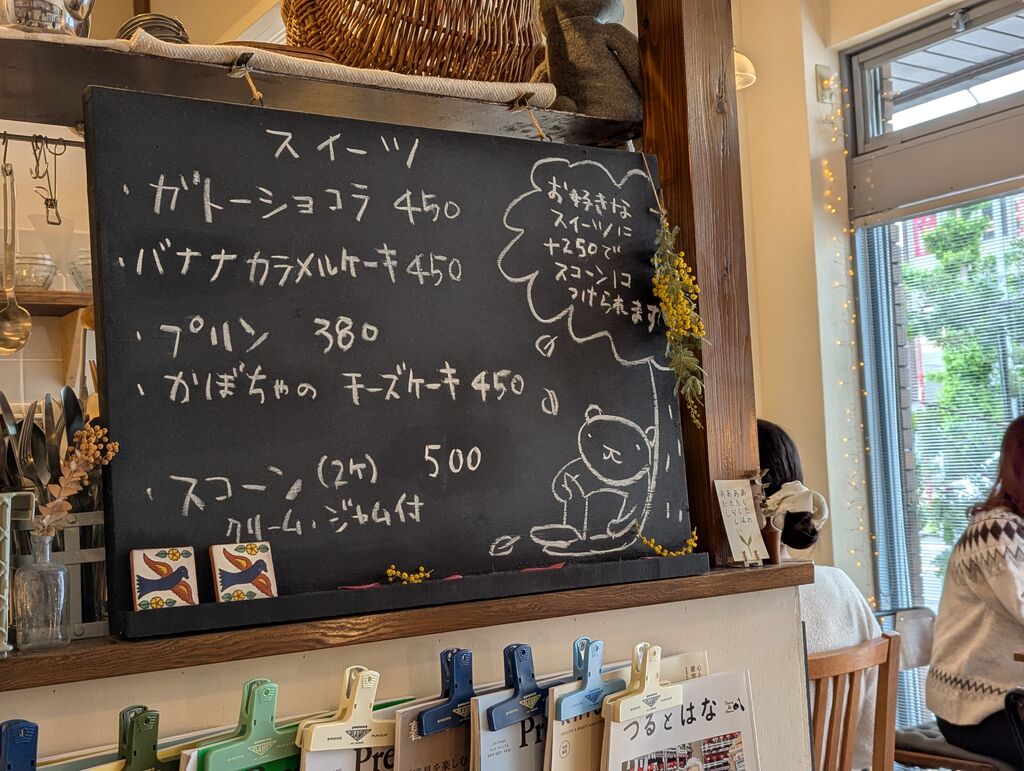 スイーツ
・ガトーショコラ 450
・バナナカラメルケーキ 450
・プリン 380
・かぼちゃの チーズケーキ 450
・スコーン(2ヶ) 500
クリーム・ジャム付
お好きな
スイーツに
+250で
スコーン1コ
つけられます
あたしの
あしたは
あたらしい
つるとはな